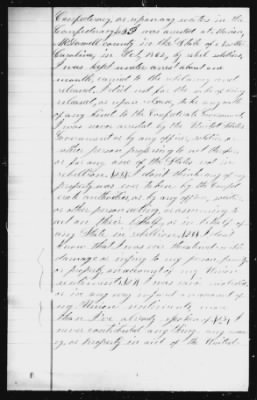 Confederacy or upon any waters in the
Confederacy. 23 I was arrested at Marion,
McDowell county in the State of North
Carolina, in July 1862, by rebel soldiers,
I was kept under arrest about one
month, cannot to the
released. I did not for the sake of being
released, or upon release, take any oath
of any kind to the Confederate Government,
I was never arrested by the United States
Government or by any officer, soldier, or
other person professing to act therefor,
or for any one of the States not in
rebellion. I don't think any of my
property was ever taken by the Confed-
erate authorities, or by any officer, soldier
or other person acting, or assuming to
act on their behalf, or in behalf of
any State in rebellion. I don't
know that I was ever threatened with
damage or injury to my person, family
or property on account of my Union
sentiments. I was never molested,
or in any way injured on account of
my Union sentiments, more
than I've already spoken of. I
never contributed anything, any money
or property in aid of the United